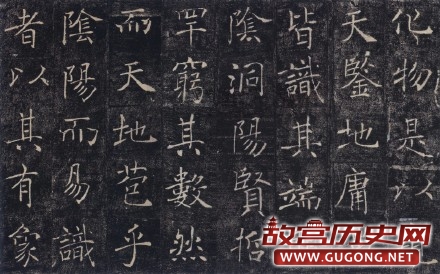 化物是以
天鑒地庸
皆識其端
陰洞陽賢哲
罕窮其數然
而天地苞乎
陰陽而易識
者以其有象
故宫历史网
WWW.GUGONG.NET